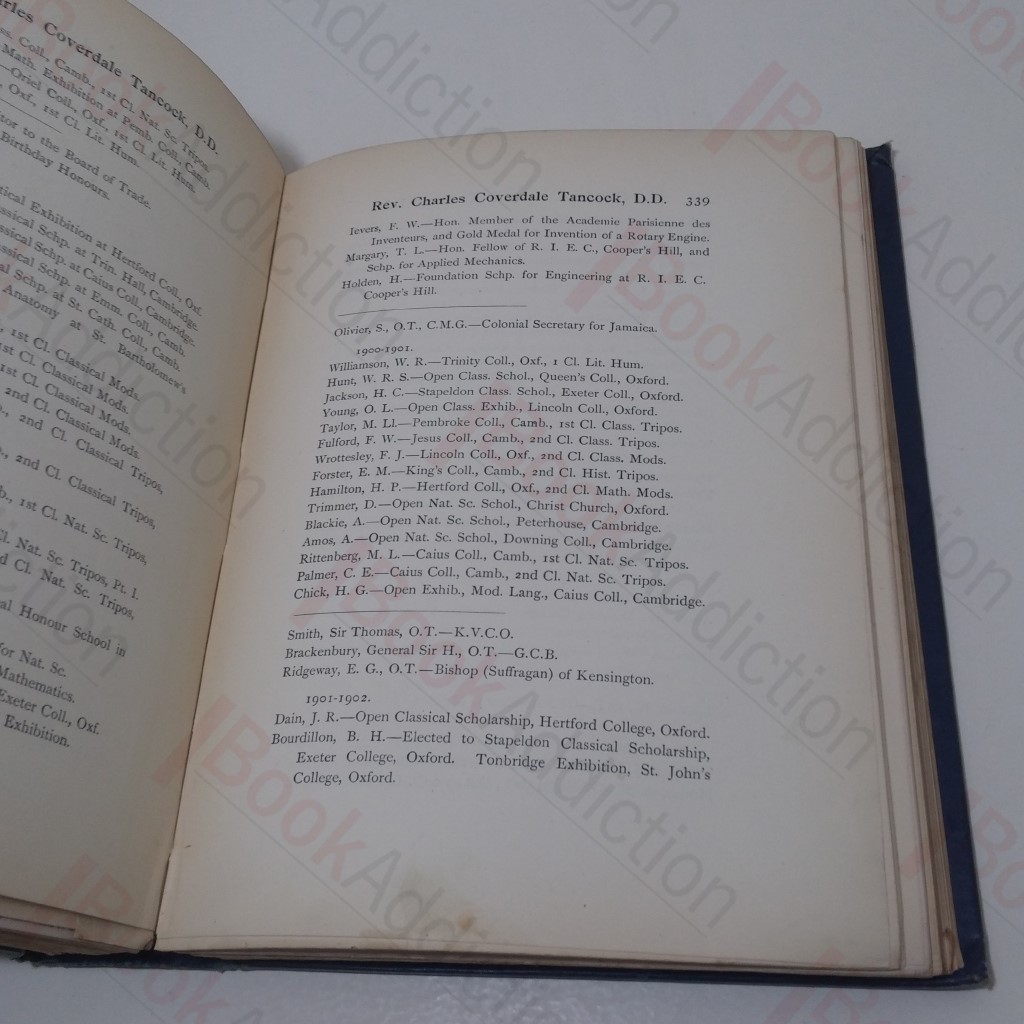 Charles Coverdale Tancock, D.D.
Coll., Camb., 1st Cl. Nat. Sc. Tripos.
Math. Exhibition at Pemb. Coll., Camb.
—Oriel Coll., Oxf., 1st Cl. Lit. Hum.
Oxf., 1st Cl. Lit. Hum.
to the Board of Trade.
Birthday Honours.
Exhibition at Hertford Coll., Oxf.
Schp. at Trin. Hall, Cambridge.
Schp. at Caius Coll., Cambridge.
Schp. at Emm. Coll., Camb.
Schp. at St. Cath. Coll., Camb.
Anatomy at St. Bartholomew's
1st Cl. Classical Mods.
1st Cl. Classical Mods.
1st Cl. Classical Mods.
2nd Cl. Classical Mods.
2nd Cl. Classical Tripos,
2nd Cl. Classical Tripos,
1st Cl. Nat. Sc. Tripos,
Cl. Nat. Sc. Tripos, Pt. I.
Cl. Nat. Sc. Tripos,
Honour School in
for Nat. Sc.
Mathematics.
Exeter Coll., Oxf.
Exhibition.
Rev. Charles Coverdale Tancock, D.D. 339
Ievers, F. W.—Hon. Member of the Academie Parisienne des
Inventeurs, and Gold Medal for Invention of a Rotary Engine.
Margary, T. L.—Hon. Fellow of R. I. E. C., Cooper's Hill, and
Schp. for Applied Mechanics.
Holden, H.—Foundation Schp. for Engineering at R. I. E. C.
Cooper's Hill.
Olivier, S., O.T., C.M.G.—Colonial Secretary for Jamaica.
1900-1901.
Williamson, W. R.—Trinity Coll., Oxf., 1 Cl. Lit. Hum.
Hunt, W. R. S.—Open Class. Schol., Queen's Coll., Oxford.
Jackson, H. C.—Stapeldon Class. Schol., Exeter Coll., Oxford.
Young, O. L.—Open Class. Exhib., Lincoln Coll., Oxford.
Taylor, M. Ll.—Pembroke Coll., Camb., 1st Cl. Class. Tripos.
Fulford, F. W.—Jesus Coll., Camb., 2nd Cl. Class. Tripos.
Wrottesley, F. J.—Lincoln Coll., Oxf., 2nd Cl. Class. Mods.
Forster, E. M.—King's Coll., Camb., 2nd Cl. Hist. Tripos.
Hamilton, H. P.—Hertford Coll., Oxf., 2nd Cl. Math. Mods.
Trimmer, D.—Open Nat. Sc. Schol., Christ Church, Oxford.
Blackie, A.—Open Nat. Sc. Schol., Peterhouse, Cambridge.
Amos, A.—Open Nat. Sc. Schol., Downing Coll., Cambridge.
Rittenberg, M. L.—Caius Coll., Camb., 1st Cl. Nat. Sc. Tripos.
Palmer, C. E.—Caius Coll., Camb., 2nd Cl. Nat. Sc. Tripos.
Chick, H. G.—Open Exhib., Mod. Lang., Caius Coll., Cambridge.
Smith, Sir Thomas, O.T.—K.V.C.O.
Brackenbury, General Sir H., O.T.—G.C.B.
Ridgeway, E. G., O.T.—Bishop (Suffragan) of Kensington.
1901-1902.
Dain, J. R.—Open Classical Scholarship, Hertford College, Oxford.
Bourdillon, B. H.—Elected to Stapeldon Classical Scholarship,
Exeter College, Oxford. Tonbridge Exhibition, St. John's
College, Oxford.